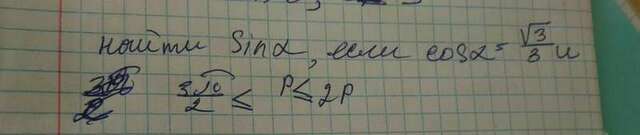 найти Sinα, если cosα = √3/3 и
3π/2 ≤ p ≤ 2p